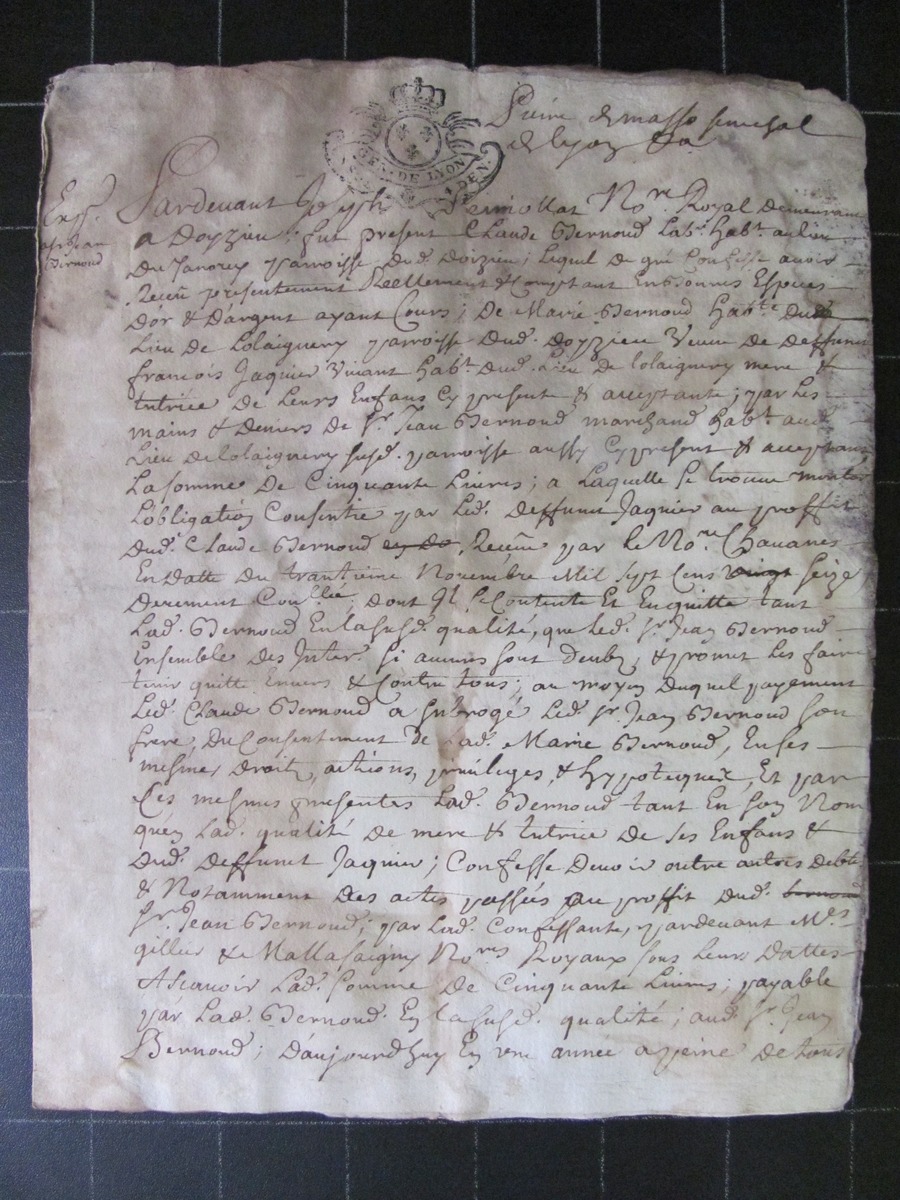 Pierre de masso senechal
de lyon
GEN. DE LYON
DEN.
Exp.
a sr Jean
Bernoud
Pardevant Joseph Perriollat No.re Royal demeurant
a Doyzieu; fut present Claude Bernoud Lab.r hab.t au lieu
Du Janorey parroisse dud. doizieu; Lequel de gré Confesse avoir
Receu presentement Reellement & Comptant En bonnes Especes
Dór & Dargent ayant Cours; De Marie Bernoud hab.te dud.
Lieu De Lolaignery parroisse dud. doyzieu Veuve de deffunt
francois Jaquier Vivant hab.t dud. Lieu de lolaignery mere &
tutrice De leurs Enfans Cy presente & acceptante; par les
mains & deniers de S.r Jean Bernoud marchand hab.t aud.
Lieu de lolaignery susd. parroisse aussy Cy present & acceptant
La somme De Cinquante Livres; a Laquelle se trouve monter
L'obligation Consentie par Led. deffunt Jaquier au proffit
Dud. Claude Bernoud Receüe par le No.re Chavanes
En datte du trantieme Novembre Mil sept Cens vingt seize
Deuement Con.llée; dont Il se Contente Et En quitte tant
Lad. Bernoud En lasusd. qualité, que led. sr. Jean Bernoud
Ensemble Des Inter. si aucuns sont deubs, & promet les faire
tenir quitte Envers & Contre tous; au moyen duquel payement
Led. Claude Bernoud a subrogé led. sr. Jean Bernoud son
frere, du Consentement de Lad. Marie Bernoud, En ses
mesmes droits, actions, privileges, & hypotecques, Et par
Ces mesmes presentes Lad. Bernoud tant En son Nom
qu'en Lad. qualité De mere & tutrice de ses Enfans &
Dud. deffunt Jaquier; Confesse devoir outre autres debtes
& Notamment Des actes passés au proffit dud. bernoud
sr. Jean Bernoud; par Lad. Confessante, pardevant M.es
gillier & Mallasaigny No.res Royaux sous leurs dattes
Ascavoir Lad. somme De Cinquante Livres; payable
par Lad. Bernoud En lasusd. qualité; aud. sr. Jean
Bernoud; D'aujourdhuy En une année a peine de tous